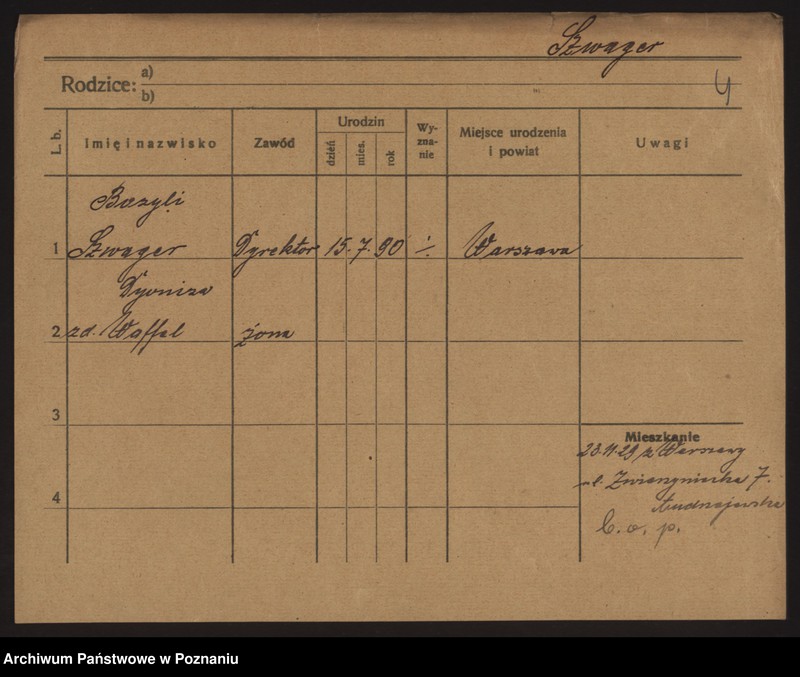 Szwager
Rodzice: a)
b)
4
L. b. Imię i nazwisko Zawód Urodzin dzień mies. rok Wyznanie Miejsce urodzenia i powiat Uwagi
Bazyli
1 Szwager Dyrektor 15. 7. 90 Warszawa
Dyoniza
2 zd. Waffel żona
3
Mieszkanie
23.11.29 z Warszawy
ul. Zwierzyniecka 7.
4
b. o. p.
Archiwum Państwowe w Poznaniu